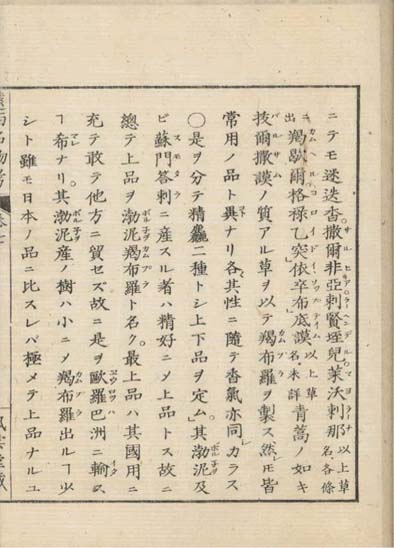 ニテモ迷迭香。撒爾非亞剌賢垤兒萊沃剌那以上草名、各條
ニ出羯歇爾格祿乙突依卒布底謨以上草名、未詳青蒿ノ如キ
抜爾撒謨ノ質アル草ヲ以テ羯布羅ヲ製ス然レ𪜈皆
常用ノ品ト異ナリ各、其性ニ隨テ香氣亦同シカラス
〇是ヲ分テ精麤二種トシ上下品ヲ定ム其渤泥及
ビ蘇門答剌ニ産スル者ハ精好ニメ上品トス故ニ
總テ上品ヲ渤泥羯布羅ト名ク。最上品ハ其國用ニ
充テ敢テ他方ニ貿セズ故ニ是ヲ歐羅巴洲ニ輸ス
ヿ希ナリ。其渤泥産ノ樹ハ小ニメ羯布羅出ルヿ少
シト雖モ日本ノ品ニ比スレバ極メテ上品ナルユ
西名物考 卷七